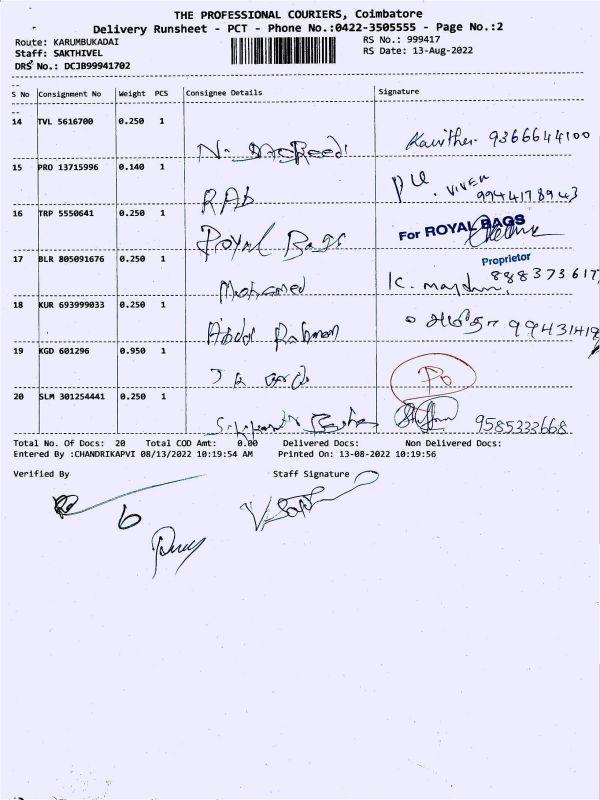 THE PROFESSIONAL COURIERS, Coimbatore
Delivery Runsheet - PCT - Phone No.:0422-3505555 - Page No.:2
Route: KARUMBUKADAI
RS No.: 999417
Staff: SAKTHIVEL
RS Date: 13-Aug-2022
DRS No.: DCJB99941702
S No Consignment No Weight PCS Consignee Details Signature
14 TVL 5616700 0.250 1
Kavitha 9366644100
N.
15 PRO 13715996 0.140 1
VIVEK
9944178943
RAB
16 TRP 5550641 0.250 1
For ROYAL BAGS
Royal Bags
Proprietor
17 BLR 805091676 0.250 1
K. 888373617
Mohamed
18 KUR 693999033 0.250 1
99431419
Abdul Rahman
19 KGD 601296 0.950 1
20 SLM 301254441 0.250 1
9585333668
Total No. Of Docs: 20 Total COD Amt: 0.00 Delivered Docs: Non Delivered Docs:
Entered By :CHANDRIKAPVI 08/13/2022 10:19:54 AM Printed On: 13-08-2022 10:19:56
Verified By Staff Signature
6